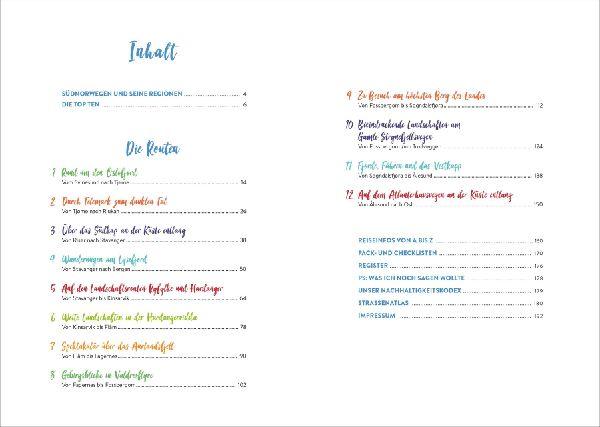 Inhalt
SÜDNORWEGEN UND SEINE REGIONEN 4
DIE TOP TEN 6
Die Routen
1 Rund um den Oslofjord
14
2 Durch Telemark zum dunklen Tal
Von Tjøme nach Rjukan 26
3 Über das Südkap an der Küste entlang
Von Rjukan nach Stavanger 38
4 Wanderungen am Lysefjord
Von Stavanger nach Bergen 50
5 Auf den Landschaftsrouten Ryfylke und Hardanger
Von Stavanger bis Kinsarvik 64
6 Weite Landschaften in der Hardangervidda
Von Kinsarvik bis Flåm 78
7 Spektakulär über das Aurlandsfjell
Von Flåm bis Fagernes 90
8 Gebirgsblicke in Valdresflye
Von Fagernes bis Fossbergom 102
9 Zu Besuch am höchsten Berg des Landes
Von Fossbergom bis Sogndalsfjøra
10 Beeindruckende Landschaften am
Gamle Strynefjellsvegen
11 Fjorde, Fähren und das Vestkapp
Von Sogndalsfjøra bis Ålesund 138
12 Auf dem Atlanterhavsvegen an der Küste entlang
150
REISEINFOS VON A BIS Z 160
PACK- UND CHECKLISTEN 170
REGISTER 176
PS: WAS ICH NOCH SAGEN WOLLTE 178
UNSER NACHHALTIGKEITSKODEX 179
STRASSENATLAS 180
IMPRESSUM 192